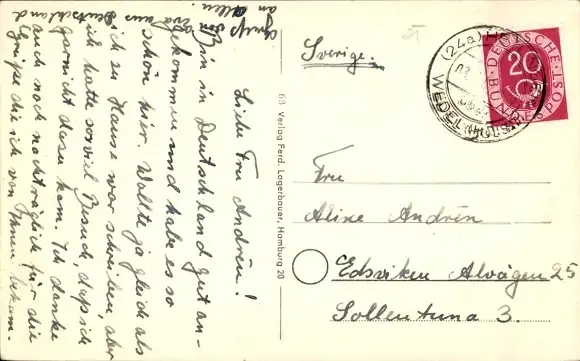 Liebe Fru Andrén!
Bin in Deutschland gut an-
gekommen und habe es so
schön hier. Wollte ja gleich als
ich zu Hause war schreiben aber
ich hatte so viel Besuch daß ich
garnicht dazu kam. Ich danke
auch noch nachträglich für die
Grüße die ich von Ihnen bekam.
Gruß
an allen. von
aus
Deutschland
63 Verlag Ferd. Lagerbauer, Hamburg 20
Sverige.
(24a)
WEDEL (HOLST)
DEUTSCHE BUNDESPOST
20
Fru
Aline Andrén
Edsviken Alvägen 25
Sollentuna 3.